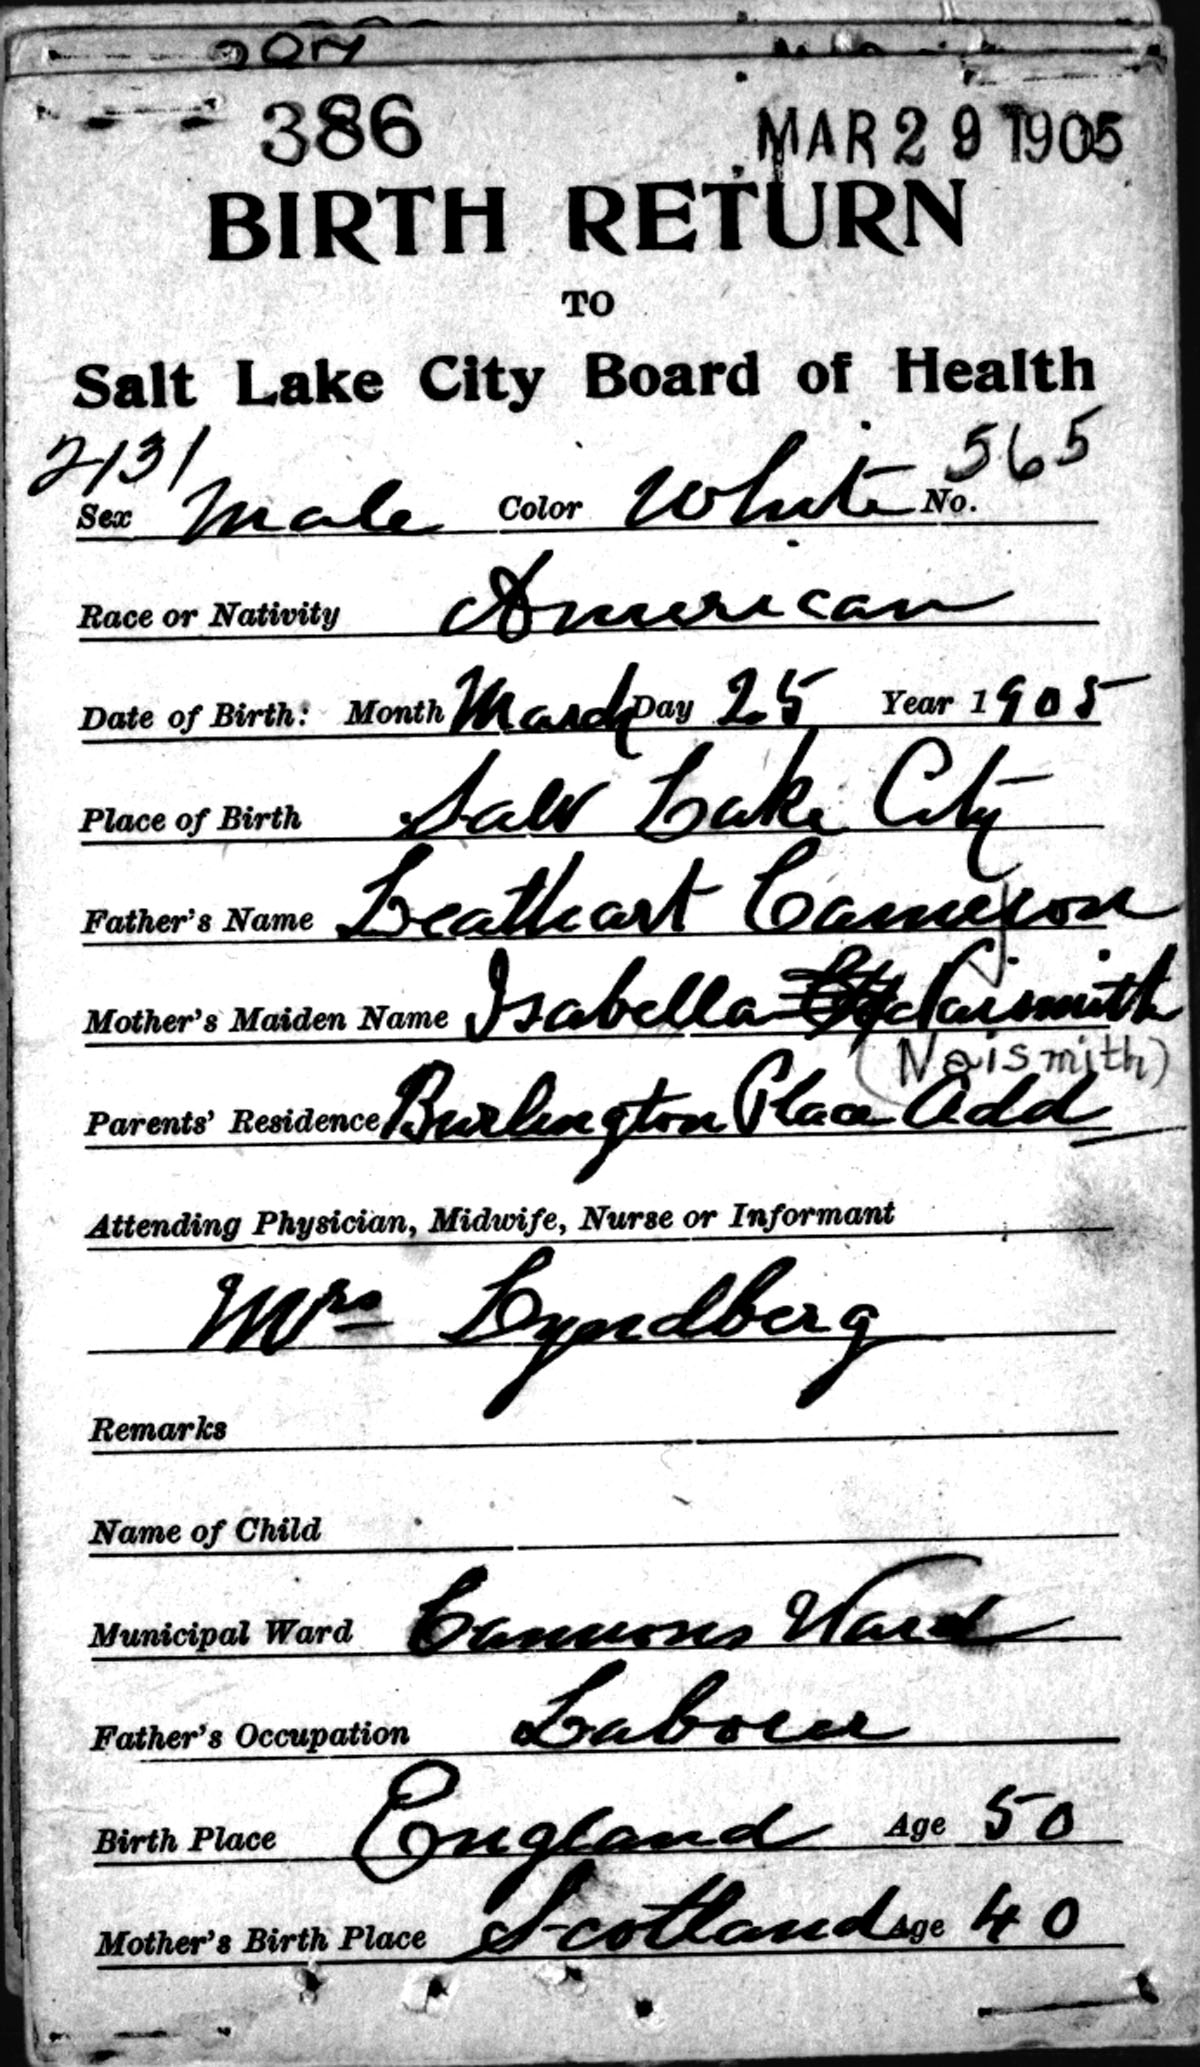 386 MAR 29 1905
BIRTH RETURN
TO
Salt Lake City Board of Health
2131 565
Sex Male Color White No.
Race or Nativity American
Date of Birth: Month March Day 25 Year 1905
Place of Birth Salt Lake City
Father's Name Leathart Cameron
Mother's Maiden Name Isabella Naismith
(Naismith)
Parents' Residence Burlington Place Add
Attending Physician, Midwife, Nurse or Informant
Mrs Lyndberg
Remarks
Name of Child
Municipal Ward Cannons Ward
Father's Occupation Laborer
Birth Place England Age 50
Mother's Birth Place Scotland Age 40